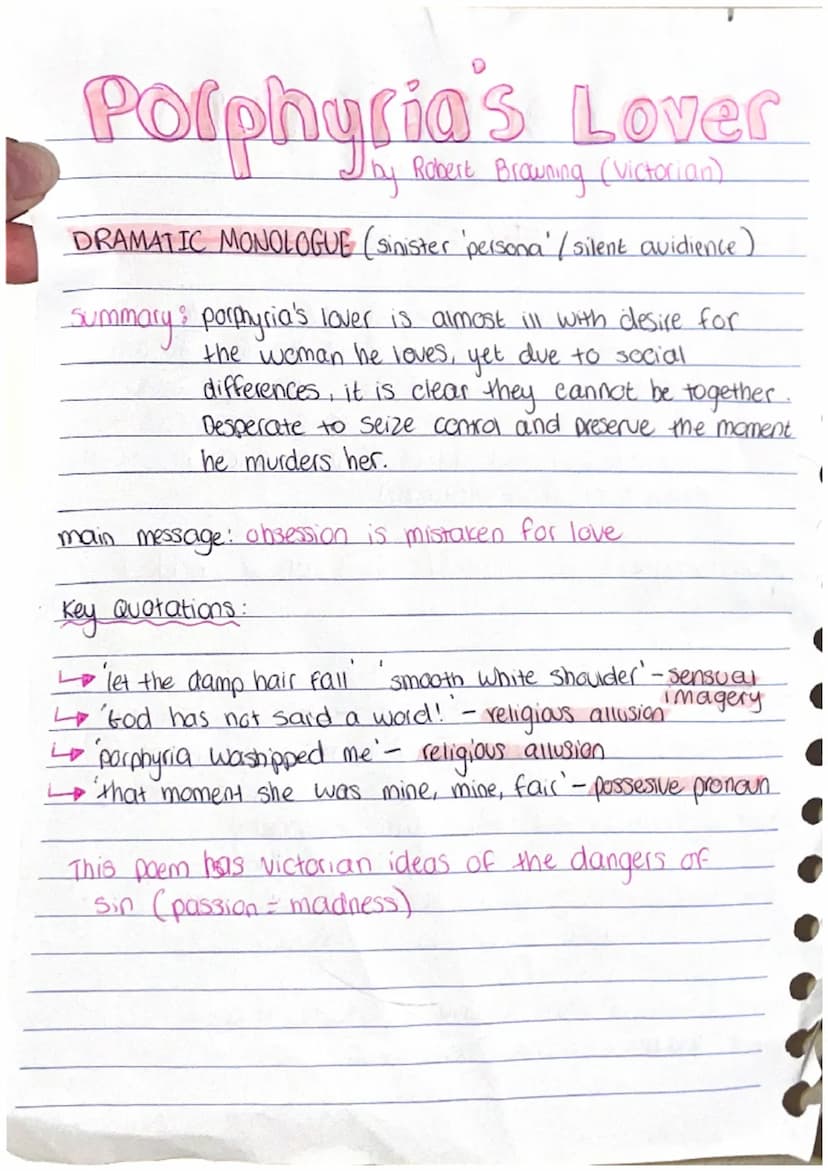 Porphyria's Lover
by Robert Browning (Victorian)
DRAMATIC MONOLOGUE (sinister 'persona' / silent auidience)
Summary: porphyria's lover is almost ill with desire for
the woman he loves, yet due to social
differences, it is clear they cannot be together.
Desperate to seize control and preserve the moment
he murders her.
main message: obsession is mistaken for love
Key Quotations:
↳ 'let the damp hair fall' 'smooth white shoulder' - sensual
imagery
↳ 'God has not said a word!' - religious allusion
↳ 'porphyria worshipped me' - religious allusion
↳ 'that moment she was mine, mine, fair' - possesive pronoun
This poem has Victorian ideas of the dangers of
sin (passion = madness)